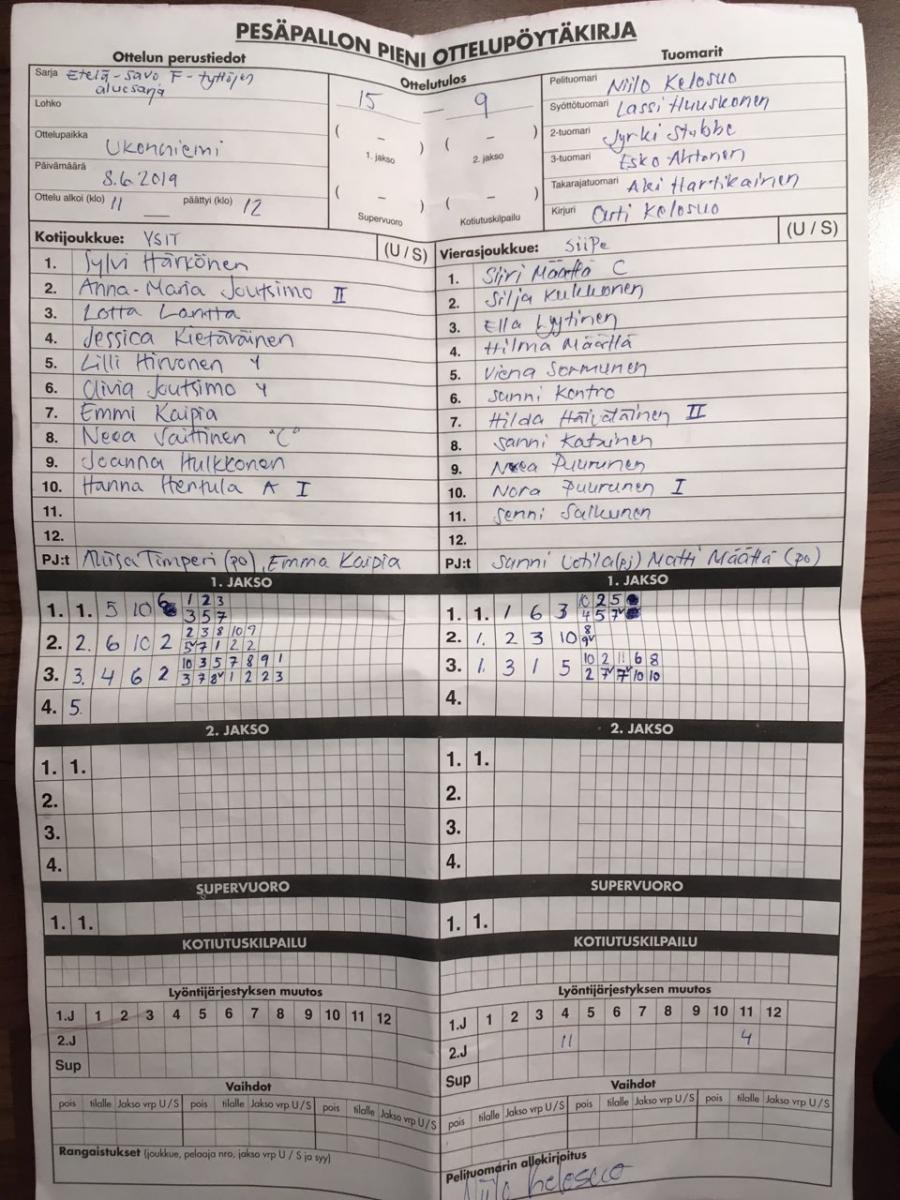 PESÄPALLON PIENI OTTELUPÖYTÄKIRJA
Ottelun perustiedot
Sarja Etelä-Savo F-tyttöjen
aluesarja
Lohko
Ottelupaikka Ukonniemi
Päivämäärä 8.6.2019
Ottelu alkoi (klo) 11 päättyi (klo) 12
Ottelutulos
15 - 9
( - ) ( - )
1. jakso 2. jakso
( - ) ( - )
Supervuoro Kotiutuskilpailu
Tuomarit
Pelituomari Niilo Kelosuo
Syöttötuomari Lassi Huuskonen
2-tuomari Jyrki Stubbe
3-tuomari Esko Ahtonen
Takarajatuomari Aki Hartikainen
Kirjuri Arti Kelosuo
Kotijoukkue: YSIT (U / S)
1. Sylvi Härkönen
2. Anna-Maria Joutsimo II
3. Lotta Lantta
4. Jessica Kietäväinen
5. Lilli Hirvonen Y
6. Olivia Joutsimo Y
7. Emmi Kaipia
8. Neea Vaittinen "C"
9. Joanna Hulkkonen
10. Hanna Hentula A I
11.
12.
PJ:t Miisa Timperi (po), Emma Kaipia
Vierasjoukkue: SiiPe (U / S)
1. Siiri Määttä C
2. Silja Kukkonen
3. Ella Lyytinen
4. Hilma Määttä
5. Viena Sormunen
6. Sanni Kontro
7. Hilda II
8. Sanni Katainen
9. Neea Puurunen
10. Nora Puurunen I
11. Senni Saikunen
12.
PJ:t Sanni Uotila(pj) Matti Määttä (po)
1. JAKSO
1. 1. 5 10 6 1 2 3
3 5 7
2. 2. 6 10 2 2 3 8 10 9
5 7 1 2 2
3. 3. 4 6 2 10 3 5 7 8 9 1
3 7 8 1 2 2 3
4. 5.
1. JAKSO
1. 1. 1 6 3 10 2 5
4 5 7
2. 1. 2 3 10 8
9
3. 1. 3 1 5 10 2 11 6 8
2 7 7 10 10
4.
2. JAKSO
1. 1.
2.
3.
4.
2. JAKSO
1. 1.
2.
3.
4.
SUPERVUORO
1. 1.
SUPERVUORO
1. 1.
KOTIUTUSKILPAILU
KOTIUTUSKILPAILU
Lyöntijärjestyksen muutos
1.J 1 2 3 4 5 6 7 8 9 10 11 12
2.J
Sup
Lyöntijärjestyksen muutos
1.J 1 2 3 4 5 6 7 8 9 10 11 12
2.J 11 4
Sup
Vaihdot
pois tilalle Jakso vrp U / S pois tilalle Jakso vrp U / S pois tilalle Jakso vrp U / S
Vaihdot
pois tilalle Jakso vrp U / S pois tilalle Jakso vrp U / S pois tilalle Jakso vrp U / S
Rangaistukset (joukkue, pelaaja nro, jakso vrp U / S ja syy)
Pelituomarin allekirjoitus
Niilo Kelosuo